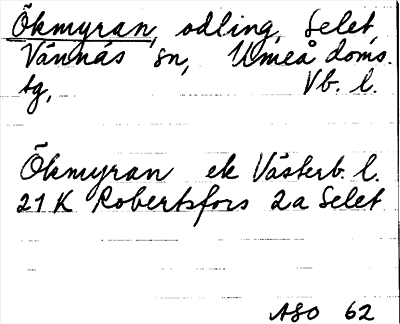 Ökmyran, odling, Selet,
Vännäs sn, Umeå doms.
tg, Vb. l.
Ökmyran ek Västerb. l.
21 K Robertsfors 2a Selet
ASO 62